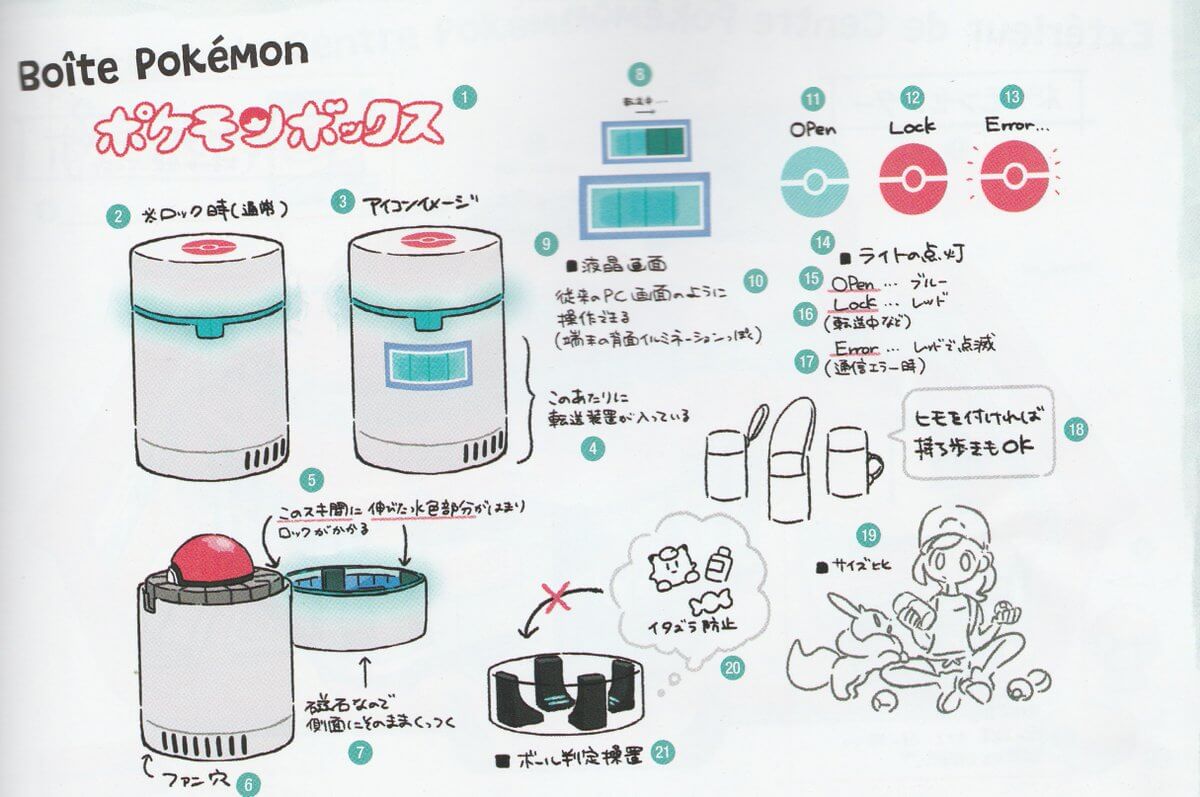 Boîte Pokémon
ポケモンボックス
1
2
※ロック時(通常)
3
アイコンイメージ
このあたりに
転送装置が入っている
4
5
このスキ間に伸びた水色部分がはまり
ロックがかかる
ファン穴
6
磁石なので
側面にそのままくっつく
7
8
転送中…
9
■液晶画面
従来のPC画面のように
操作できる
(端末の背面イルミネーションっぽく)
10
11
Open
12
Lock
13
Error...
14
■ライトの点灯
15
Open … ブルー
Lock … レッド
16
(転送中など)
Error … レッドで点滅
17
(通信エラー時)
ヒモを付ければ
持ち歩きもOK
18
19
■サイズ比
イタズラ防止
20
■ボール判定装置
21